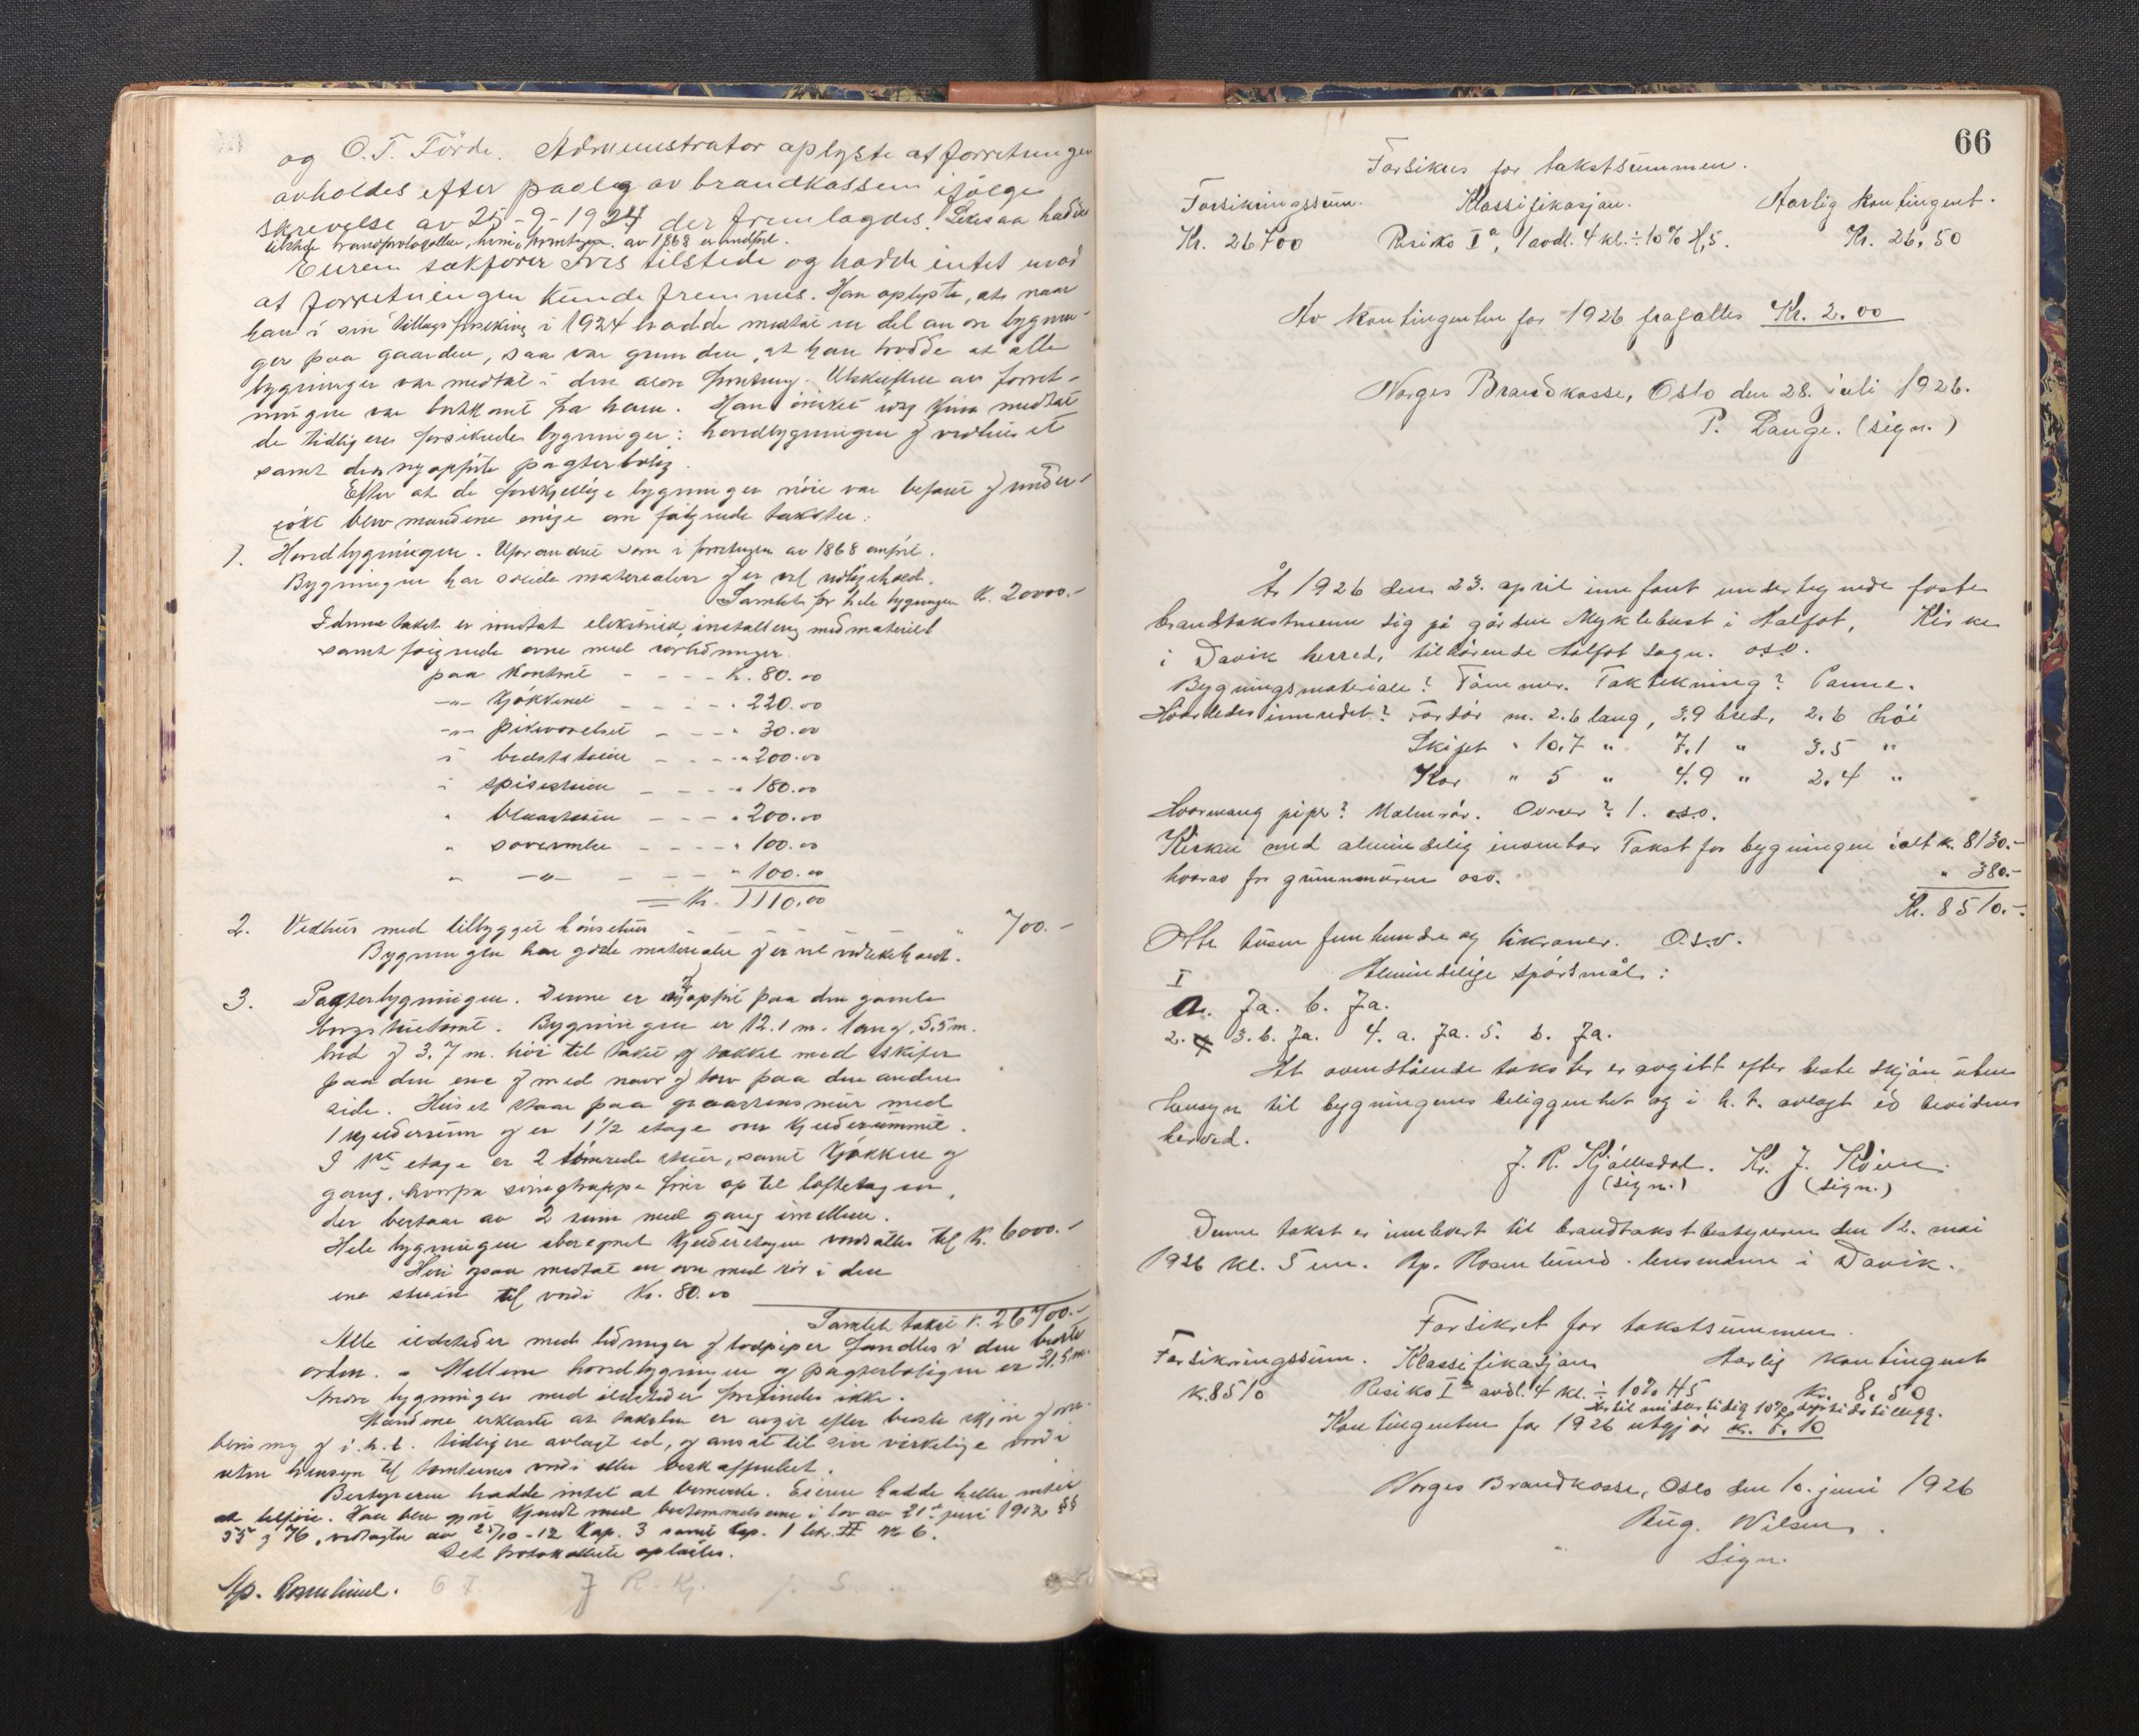 og O. T. Förde. Administrator oplyste at forretningen
avholdes efter paalæg av brandkassen ifölge
skrivelse av 25-9-1924 der fremlagdes. Likesaa hadde
tilstede brandprotokollen, hvori forretningen av 1868 er indfört.
Eieren sakförer Ives tilstede og hadde intet imod
at forretningen kunde fremmes. Han oplyste, at naar
han i sin tillægsforsikring i 1924 hadde medtat en del av bygnin-
ger paa gaarden, saa var grunden, at han trodde at alle
bygninger var medtat i den ældre forretning. Utskriften av forret-
ningen var bortkomt fra ham. Han önsket idag kun medtat
de tidligere forsikrede bygninger: hovedbygningen og vedhuset
samt den nyopförte pagterbolig.
Efter at de forskjellige bygninger nöie var befaret og under-
sökt blev mændene enige om fölgende takster:
1. Hovedbygningen. Uforandret som i forretningen av 1868 anfört.
Bygningen har solide materialer og er vel vedlikeholdt.
Samlet for hele bygningen Kr. 20000.-
I denne takst er medtat elektrisk installering med materiel
samt fölgende ovne med rörledninger
paa kontoret - - - - kr. 80.00
-"- kjökkenet - - - - " 220.00
-"- pikeværelset - - - " 30.00
i bedstestuen - - - - " 200.00
" spisestuen - - - - " 180.00
" blaastuen - - - " 200.00
" soverværelse - - - - " 100.00
" -"- - - - " 100.00
= Kr. 1110.00
2. Vedhus med tilbygget hönsehus " 700.-
Bygningen har gode materialer og er vel vedlikeholdt.
3. Pagterbygningen. Denne er nyopfört paa den gamle
borgstuetomt. Bygningen er 12.1 m. lang, 5.5 m.
bred og 3.7 m. höi til taket og takket med skifer
paa den ene og med næver og torv paa den anden
side. Huset staar paa graastensmur med
1 kjelderrum og er 1 1/2 etage over kjelderrummet.
I 1ste etage er 2 tömrede stuer, samt kjökken og
gang, hvorfra svingtrappe förer op til loftetagen,
der bestaar av 2 rum med gang imellem.
Hele bygningen iberegnet kjelderetagen værdsættes til Kr. 6000.-
Heri ogsaa medtat en ovn med rör i den
ene stuen til værdi Kr. 80.00
Samlet takst Kr. 26700.-
Alle ildsteder med ledninger og lodpiper fandtes i den beste
orden. - Mellem hovedbygningen og pagterboligen er 31.5 m.
Andre bygninger med ildsteder forefindes ikke.
Mændene erklærte at taksten er avgit efter bedste skjön og over-
bevisning og i h.t. tidligere avlagt ed, og ansat til sin virkelige værdi
uten hensyn til tomtenes værdi eller beskaffenhet.
Bestyreren hadde intet at bemerke. Eieren hadde heller intet
at tilföie. Han blev gjort kjendt med bestemmelsene i lov av 21de juni 1912 §§
35 og 76, vedtægter av 25/10-12 Kap. 3 samt kap. 1 litr. II nr 6.
Det protokollerte oplæstes.
Ap. Rosenlund. O F. J R. Kj. J. S.
66
Forsikres for takstsummen.
Forsikringssum. Klassifikasjon. Aarlig kontingent.
Kr. 26700 Risiko Ia, 1 avdl. 4 kl. ÷ 10% H,5. Kr. 26,50
Av kontingenten for 1926 frafalles Kr. 2.00
Norges Brandkasse, Oslo den 28. juli 1926.
P. Lange. (sign.)
År 1926 den 23. april innfant undertegnede faste
brandtakstmenn sig på gården Myklebust i Ålfot, Kirke
i Davik herred, tilhörende Ålfot sogn. o.s.v.
Bygningsmateriale? Tömmer. Taktekning? Panne.
Hvorledes innredet? Fordör m. 2.6 lang, 3.9 bred, 2.6 höi
Skipet " 10.7 " 7.1 " 3.5 "
Kor " 5 " 4.9 " 2.4 "
Hvormang piper? Malmrör. Ovner? 1. o.s.v.
Kirken med almindelig inventar Takst for bygningen ialt kr. 8130.-
hvorav for grunnmuren osv. " 380.-
Kr. 8510.-
Otte tusen femhundre og tikroner. O.s.v.
I Almindelige spörsmål:
a. Ja. b. Ja.
2. 3. b. Ja. 4. a. Ja. 5. b. Ja.
At ovenstående takster er avgitt efter beste skjön uten
hensyn til bygningens beliggenhet og i h. t. avlagt ed bevidnes
herved.
J. R. Kjöllesdal. Kr. J.
(sign.) (sign.)
Denne takst er innlevert til brandtakstbestyreren den 12. mai
1926 kl. 5 em. Ap. Rosenlund. lensmann i Davik.
Forsikret for takstsummen.
Forsikringssum. Klassifikasjon Aarlig kontingent
kr. 8510 Risiko Ia avdl. 4 kl. ÷ 10% H5 kr. 8,50
10%
Kontingenten for 1926 utgjör kr.
Norges Brandkasse, Oslo den 10. juni 1926
Aug. Nilsen.
Sign.